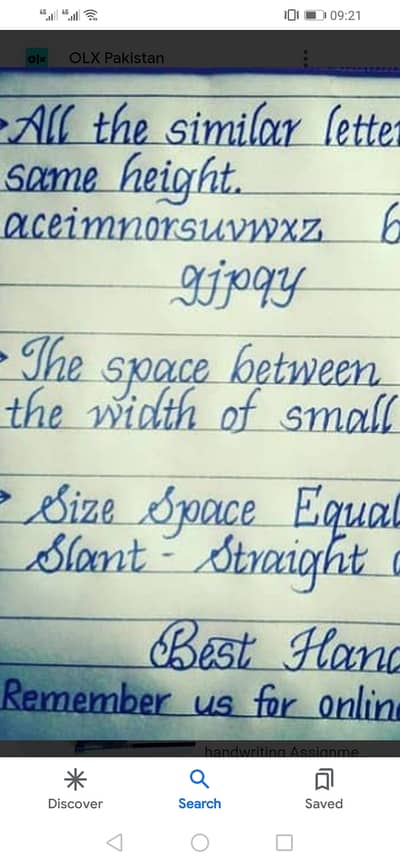 09:21
OLX Pakistan
All the similar letter
same height.
aceimnorsuvwxz b
gjpqy
The space between
the width of small
Size Space Equal
Slant - Straight
Best Hand
Remember us for online
handwriting Assignme
Discover
Search
Saved